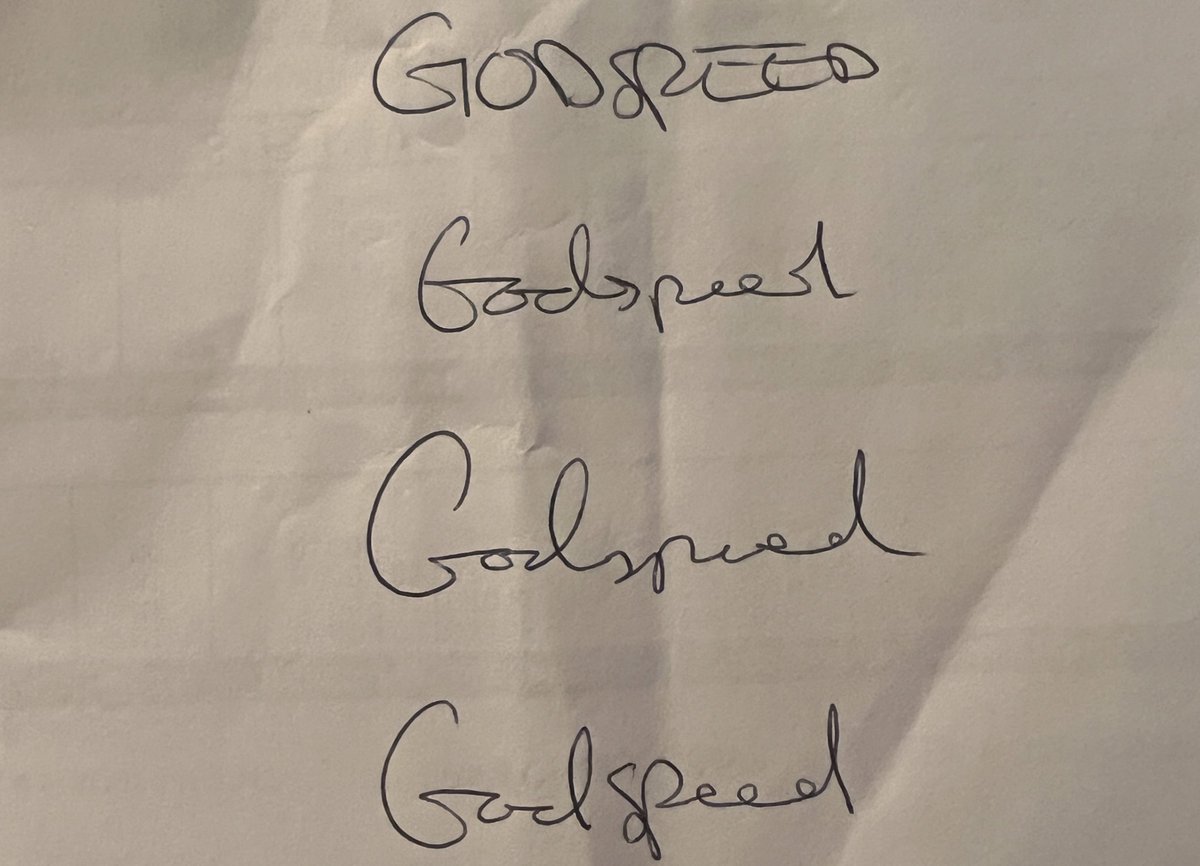 GODSPEED
Godspeed
Godspeed
Godspeed